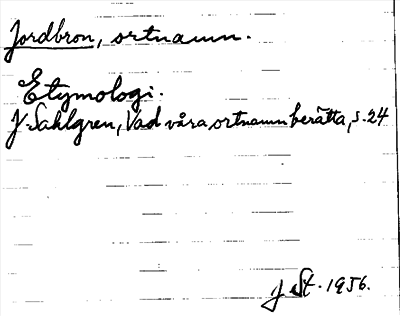 Jordbron, ortnamn.
Etymologi.
J. Sahlgren, Vad våra ortnamn berätta, s. 24
J St. 1956.